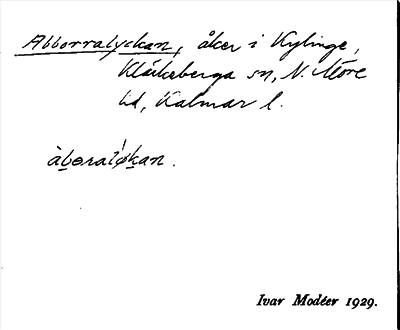 Abborralyckan, åker i Kylinge,
Kläckeberga sn, N. Möre
hd, Kalmar l.
àbɷral ø̀kan.
Ivar Modéer 1929.